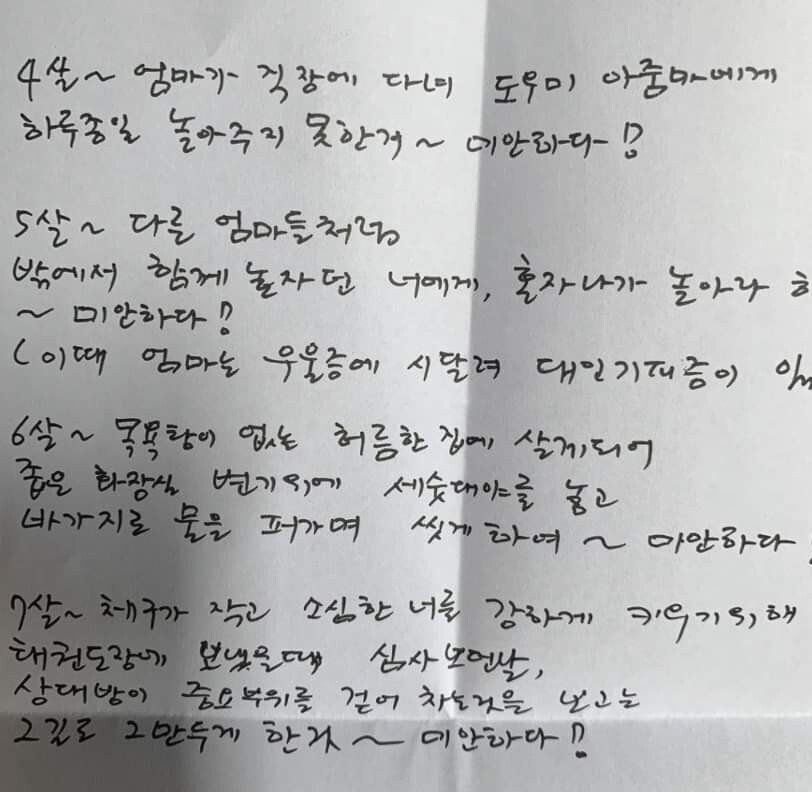 4살~ 엄마가 직장에 다녀 도우미 아줌마에게
하루종일 놀아주지 못한거~ 미안하다!
5살~ 다른 엄마들처럼
밖에서 함께 놀자던 너에게, 혼자나가 놀아라 하
~ 미안하다!
(이때 엄마는 우울증에 시달려 대인기피증이
6살~ 목욕탕이 없는 허름한 집에 살게되어
좁은 화장실 변기위에 세숫대야를 놓고
바가지로 물을 퍼가며 씻게하여~ 미안하다!
7살~ 체구가 작고 소심한 너를 강하게 키우기위해
태권도장에 보냈을때 심사보던날,
상대방이 중요부위를 걷어 차는것을 보고는
그길로 그만두게 한것~ 미안하다!